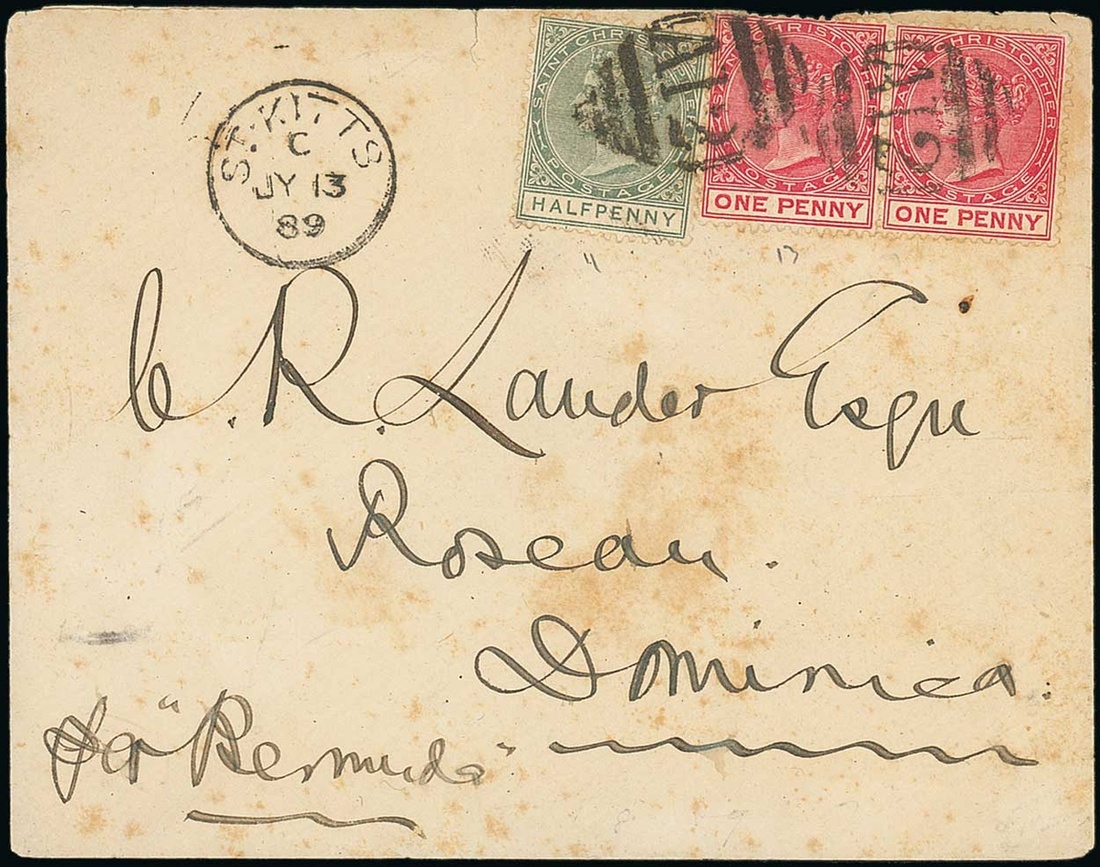 ST. KITTS
C
JY 13
89
SAINT CHRISTOPHER
POSTAGE
HALFPENNY
SAINT CHRISTOPHER
POSTAGE
ONE PENNY
SAINT CHRISTOPHER
POSTAGE
ONE PENNY
A12
A12
C. R. Lander Esqr
Roseau.
Dominica.
per "Bermuda"